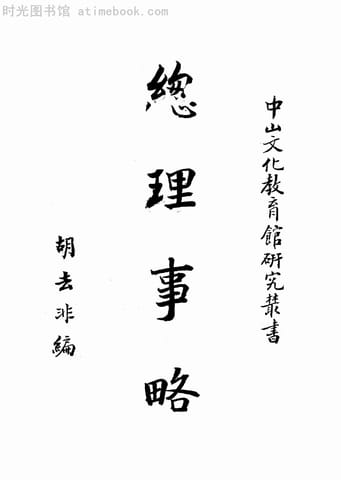 时光图书馆 atimebook.com
中山文化教育館研究叢書
總理事略
胡去非編